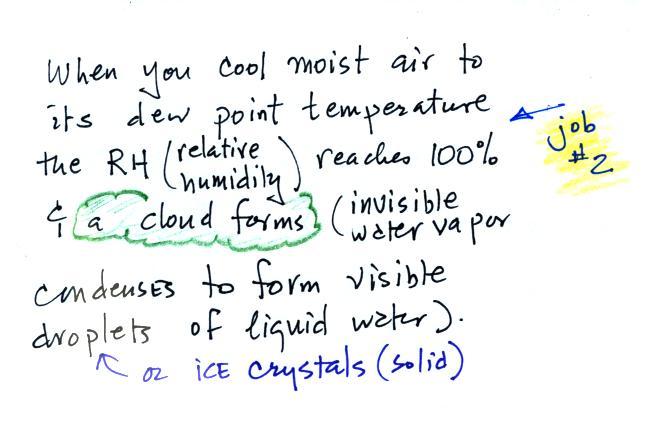 When you cool moist air to
its dew point temperature
job
#2
the RH (relative
humidity) reaches 100%
& a cloud forms (invisible
water vapor
condenses to form visible
droplets of liquid water).
or ICE crystals (solid)